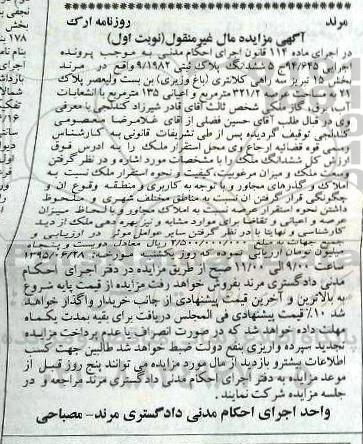 مرند روزنامه ارک
آگهی مزایده مال غیرمنقول(نوبت اول)
در اجرای ماده ۱۱۴ قانون اجرای احکام مدنی به موجب پرونده
اجرایی ۹۴/۶۴۵-۵ ششدانگ پلاک ثبتی ۹/۱۱۸۲واقع در مرند
بخش ۱۵ تبریز سه راهی کلانتری (باغ وزیری) بن بست ولیعصر پلاک
۲۹ به مساحت ۳۲۱/۲ مترمربع و اعیانی ۱۳۵ مترمربع با انشعابات
آب، برق، گاز ملکی شخص ثالث آقای قادر شیرزاد کندلجی با معرفی
وی در قبال طلب آقای حسین فضلی از آقای غلامرضا معصومی
کندلجی توقیف گردیده پس از طی تشریفات قانونی به کارشناس
رسمی قوه قضائیه ارجاع وی محل استقرار ملک را به ادرس فوق
ارزش کل ششدانگ ملک را با مشخصات مورد اشاره و در نظر گرفتن
وسعت ملک و میزان مرغوبیت،کیفیت و نحوه استقرار ملک نسبت به
املاک و گذرهای مجاور و با توجه به کاربری و منطقه وقوع ان و
چگونگی قرار گرفتن ان نسبت به مناطق مختلف شهری و ملحوظ
داشتن نحوه استقرار عرصه نسبت به املاک مجاور و با لحاظ میزان
عرصه و اعیانی و تقاضا برای موارد مشابه و نیز بهره دهی ملک از دید
کارشناسی و نهایتا با در نظر گرفتن سایر عوامل موثر در ارزیابی و
جمیع جهات به مبلغ ۲/۵۰۰/۰۰۰/۰۰۰ ریال معادل دویست و پنجاه
میلیون تومان ارزیابی نموده که روز یکشنبه مورخه: ۱۳۹۵/۰۶/۲۸
ساعت ۹/۰۰ الی ۱۱/۰۰ صبح از طریق مزایده در دفتر اجرای احکام
مدنی دادگستری مرند بفروش خواهد رفت مزایده از قیمت پایه شروع
به بالاترین و آخرین قیمت پیشنهادی از جانب خریدار واگذار خواهد
شد ۱۰٪ قیمت پیشنهادی فی المجلس دریافت برای بقیه بمدت یکماه
مهلت داده خواهد شد که در صورت انصراف یا عدم پرداخت مزایده
تجدید سپرده واریزی بنفع دولت ضبط خواهد شد طالبین جهت کسب
اطلاعات بیشترو بازدید از مال مورد مزایده می توانند پنج روز قبل از
موعد مزایده به دفتر اجرای احکام مدنی دادگستری مرند مراجعه و در
جلسه مزایده شرکت نمایند .
واحد اجرای احکام مدنی دادگستری مرند- مصباحی